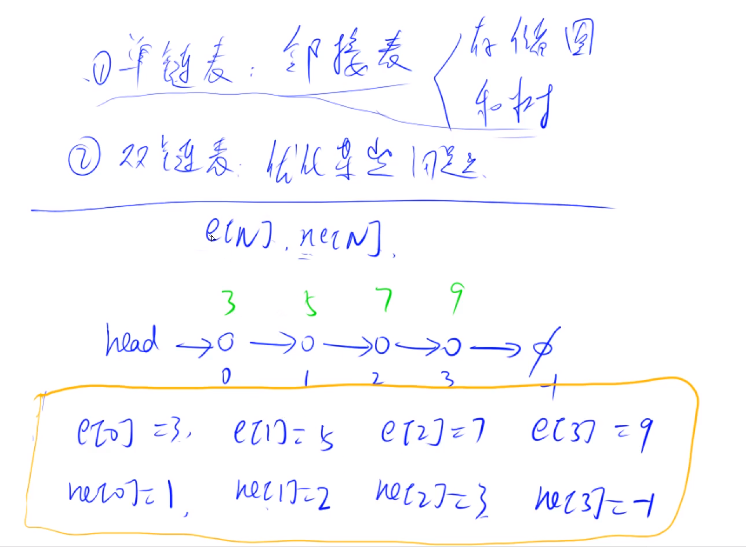 ①单链表：邻接表 存储图
和树
②双链表：优化某些问题
e[N], ne[N].
3 5 7 9
head →0 →0 →0 →0 → ∅
0 1 2 3 -1
e[0]=3, e[1]=5 e[2]=7 e[3]=9
ne[0]=1, ne[1]=2 ne[2]=3 ne[3]=-1